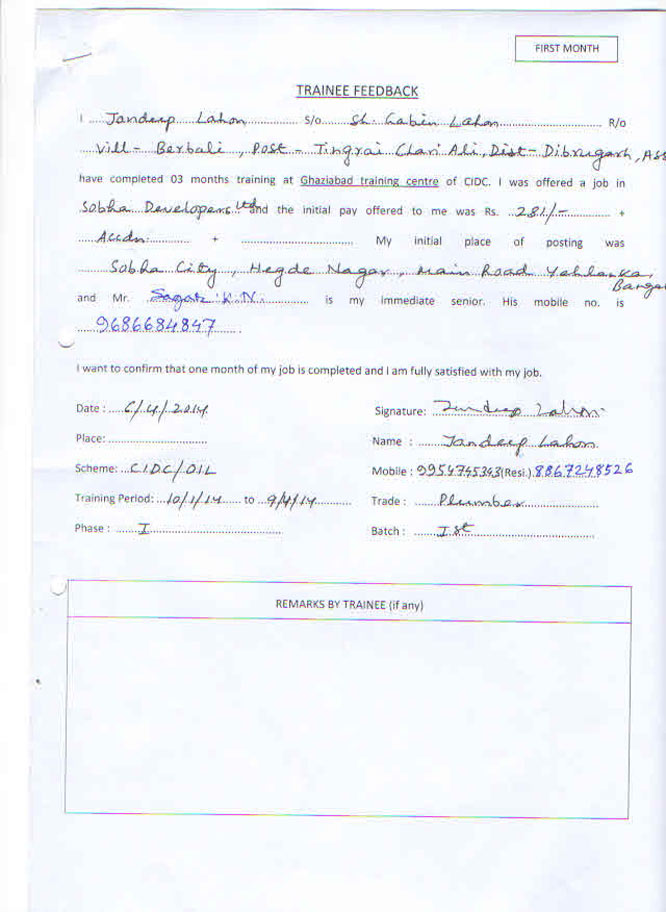 FIRST MONTH
TRAINEE FEEDBACK
I Jandeep Lahon S/o Sh. Gabin Lahon R/o
Vill - Berbali, Post - Tingrai Chari Ali, Dist - Dibrugarh, Ass
have completed 03 months training at Ghaziabad training centre of CIDC. I was offered a job in
Sobha Developers Ltd and the initial pay offered to me was Rs. 281/- +
Accdn. + My initial place of posting was
Sobha City, Hegde Nagar, Main Road Yehlanka,
Bangal
and Mr. Sagar K.N. is my immediate senior. His mobile no. is
9686684847
I want to confirm that one month of my job is completed and I am fully satisfied with my job.
Date : 6/4/2014 Signature: Jandeep Lahon
Place: Name : Jandeep Lahon
Scheme: CIDC/OIL Mobile : 9954745343 (Resi.) 8867248526
Training Period: 10/1/14 to 9/4/14 Trade : Plumber
Phase : I Batch : Ist
REMARKS BY TRAINEE (if any)